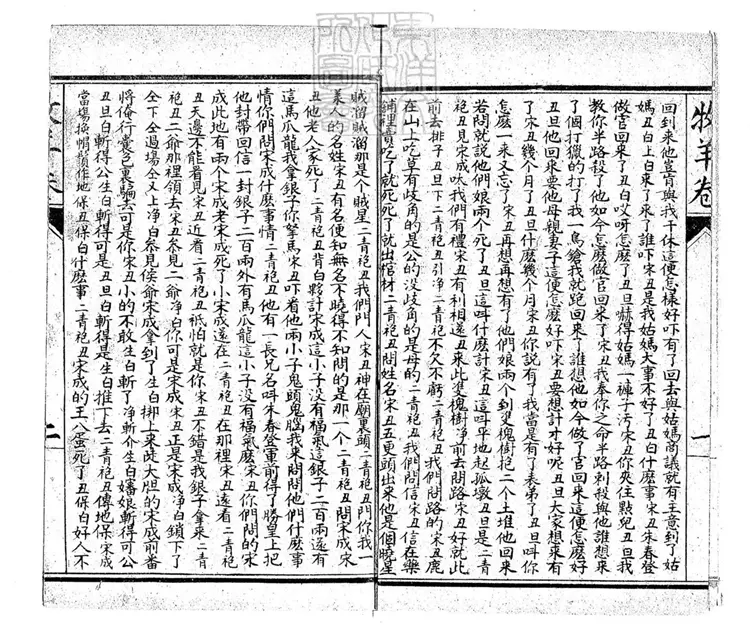 牧羊卷
一
回到來他豈肯與我干休這便怎樣好吓有了回去與姑媽商議就有主意到了姑
媽丑白上白來了來了誰吓宋丑是我姑媽大事不好了丑白什麽事宋丑朱春登
做官回來了丑白哎呀怎麽了丑旦赫得姑媽一褲子污宋丑你夾住點兒丑旦我
教你半路殺了他如今怎麽做官回來了宋丑我奉你之命半路刺殺與他誰想來
了個打獵的打了我一馬鎗我就跑回來了誰想他如今做了官回來這便怎麽好
丑旦他回來要他母親妻子這便怎麽好吓宋丑要想計才好呢丑旦大家想來有
了宋丑幾個月了丑旦什麽幾個月宋丑你說有了我當是有了表弟了丑旦叫你
怎麽一來又忘了宋丑再想再想有了他們娘兩个到雙槐樹挖二个土堆他回來
若問就說他們娘兩个死了丑旦這叫什麽計宋丑這叫平地起孤墩丑旦是二青
袍丑見宋成吠我們有禮宋丑有利相還丑來此雙槐樹淨前去問路宋丑好就此
前去排子丑旦下二青袍丑引淨二青袍丑不欠不虧二青袍丑我們問路的宋丑鹿
在山上吃草有歧角的是公的没歧角的是母的二青袍丑我們問信宋丑信在藥
舖裡賣吃了就死死了就出棺材二青袍丑問姓名宋丑五更頭出來他是個曉星
賊溜賊溜那是个賊星二青袍丑我們門人宋丑神在廟裏頭二青袍丑門你我一
某人的名姓宋丑有名便知無名不曉得不知問的是那一个二青袍丑問宋成宋
丑他老人家死了二青袍丑背白夥計宋成這小子没有福氣這銀子二百兩還有
這馬瓜龍我拿銀子你拏馬宋丑吓看他兩小子鬼頭鬼腦我來問問他們什麽事
情你們問宋成什麽事情二青袍丑他有一長兄名叫朱春登軍前得了勝皇上把
他封帶回信一封銀子二百兩外有馬瓜龍這小子没有福氣麽宋丑你們問的宋
成此地有兩个宋成老宋成死了小宋成還在二青袍丑在那裡宋丑遠看二青袍
丑天邊不能看見宋丑近看二青袍丑袛怕就是你宋丑不錯是我銀子拿來二青
袍丑二爺那裡領去宋丑叅見二爺净白你可是宋成宋丑正是宋成净白鎖下了
仝下仝過塲仝又上净白叅見侯爺宋成拿到了生白掷上來唗大胆的宋成前番
將俺行囊包裹騙去可是你宋丑小的不敢生白斬了净斬介生白嬸娘斬得可公
丑旦白斬得公生白斬得可是丑旦白斬得是生白推下去二青袍丑傳地保宋成
當塲换帽鬚作地保丑保白什麽事二青袍丑宋成的王八蛋死了丑保白好人不
二